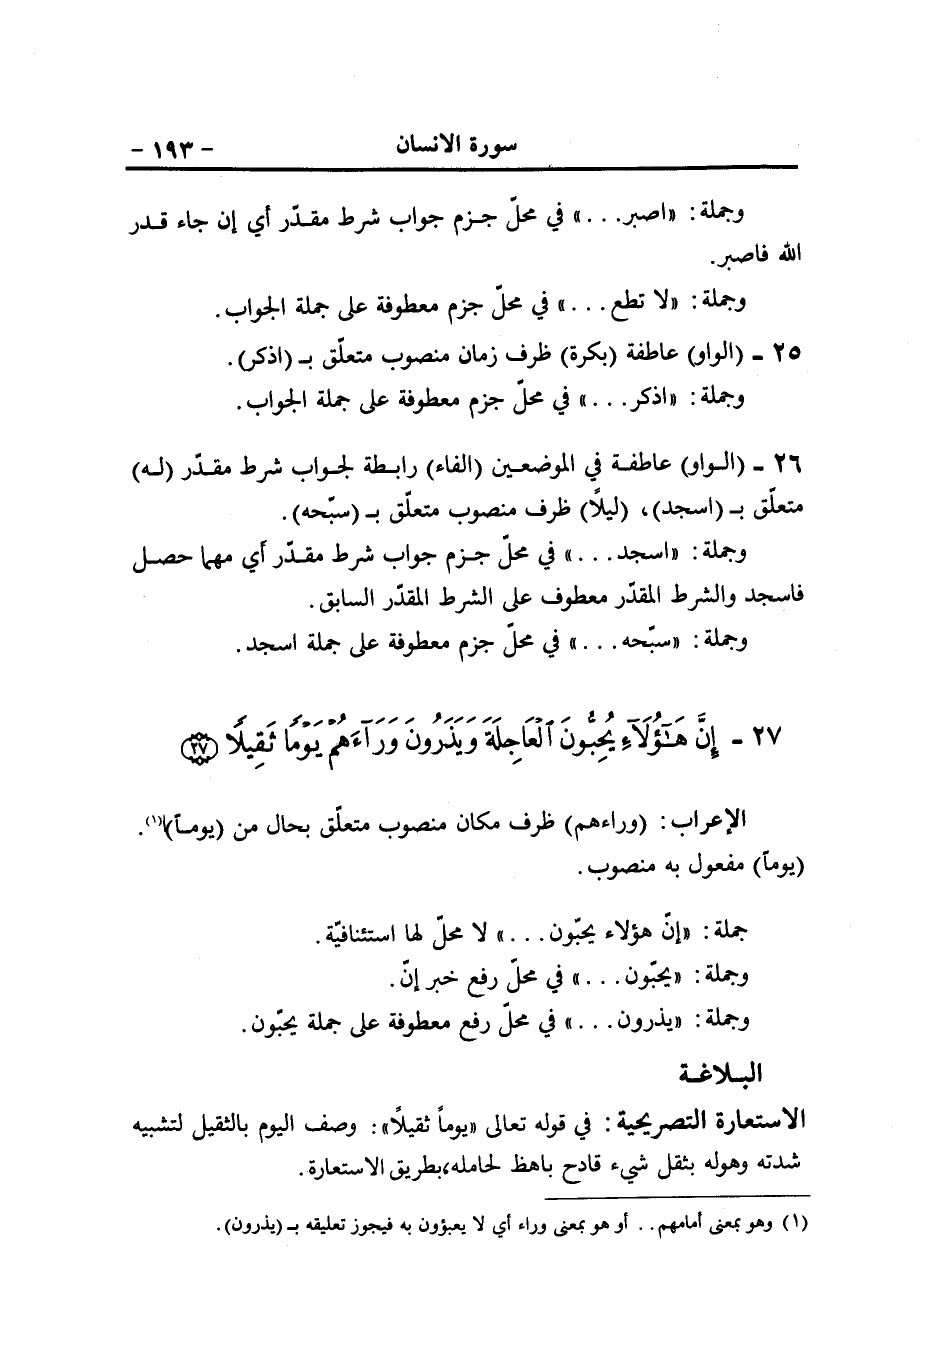 سورة الانسان - ١٩٣ -
وجملة: «اصبر. . .» في محلّ جـزم جواب شرط مقـدّر أي إن جاء قـدر
الله فاصبر.
وجملة: «لا تطع. . .» في محلّ جزم معطوفة على جملة الجواب.
٢٥ - (الواو) عاطفة (بكرة) ظرف زمان منصوب متعلّق بـ (اذكر).
وجملة: «اذكر. . .» في محلّ جزم معطوفة على جملة الجواب.
٢٦ - (الـواو) عاطفـة في الموضعـين (الفاء) رابـطة لجـواب شرط مقـدّر (لـه)
متعلّق بـ (اسجد)، (ليلًا) ظرف منصوب متعلّق بـ (سبّحه).
وجملة: «اسجد. . .» في محلّ جـزم جواب شرط مقـدّر أي مهما حصـل
فاسجد والشرط المقدّر معطوف على الشرط المقدّر السابق.
وجملة: «سبّحه. . .» في محلّ جزم معطوفة على جملة اسجد.
٢٧ - إِنَّ هَـٰٓؤُلَآءِ يُحِبُّونَ ٱلْعَاجِلَةَ وَيَذَرُونَ وَرَآءَهُمْ يَوْمًا ثَقِيلًا ﴿٢٧﴾
الإعراب: (وراءهم) ظرف مكان منصوب متعلّق بحال من (يومـاً)(١).
(يوماً) مفعول به منصوب.
جملة: «إنّ هؤلاء يحبّون. . .» لا محلّ لها استئنافيّة.
وجملة: «يحبّون. . .» في محلّ رفع خبر إنّ.
وجملة: «يذرون. . .» في محلّ رفع معطوفة على جملة يحبّون.
البـلاغـة
الاستعارة التصريحية: في قوله تعالى «يوماً ثقيلًا»: وصف اليوم بالثقيل لتشبيه
شدته وهوله بثقل شيء قادح باهظ لحامله،بطريق الاستعارة.
(١) وهو بمعنى أمامهم.. أو هو بمعنى وراء أي لا يعبؤون به فيجوز تعليقه بـ (يذرون).